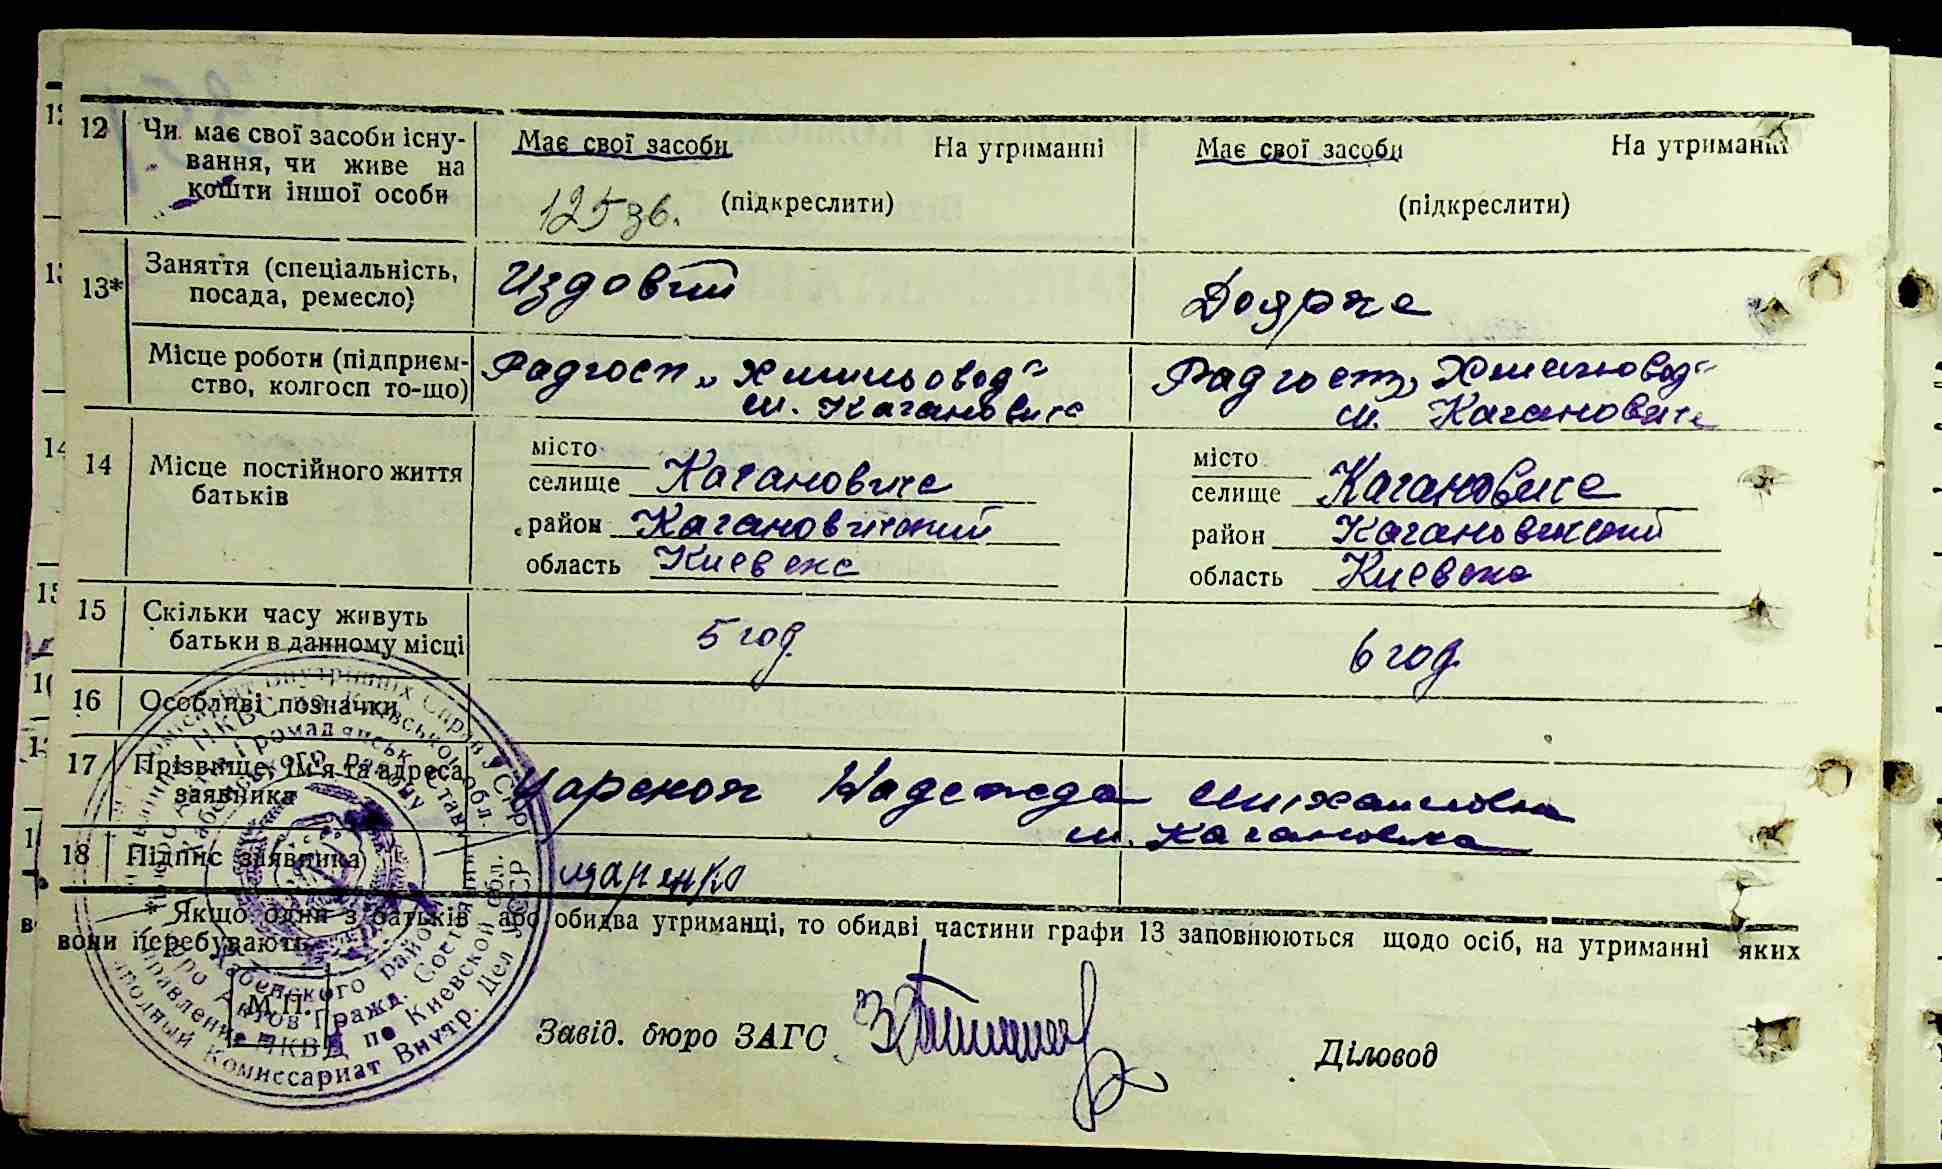 12 Чи має свої засоби існу-
вання, чи живе на
кошти іншої особи
Має свої засоби На утриманні
(підкреслити)
125 зв.
Має свої засоби На утриманні
(підкреслити)
13* Заняття (спеціальність,
посада, ремесло)
Издовий
Доярка
Місце роботи (підприєм-
ство, колгосп то-що)
Радгосп „Хмильовод"
м. Кагановича
Радгосп „Хмильовод"
м. Кагановича
14 Місце постійного життя
батьків
місто
селище Кагановича
район Кагановичский
область Киевска
місто
селище Кагановича
район Кагановичский
область Киевска
15 Скільки часу живуть
батьки в данному місці
5 год.
6 год.
16 Особливі позначки
17 Прізвище, ім'я та адреса
заявника
Надежда Михайловна
м. Кагановича
18 Підпис заявника
* Якщо один з батьків або обидва утриманці, то обидві частини графи 13 заповнюються щодо осіб, на утриманні яких
вони перебувають.
М.П.
Завід. бюро ЗАГС
Діловод
Народный Комиссариат Внутр. Дел УССР
Управление НКВД по Киевской обл.
Бюро Актов Гражд. Состояния
Хабенского района